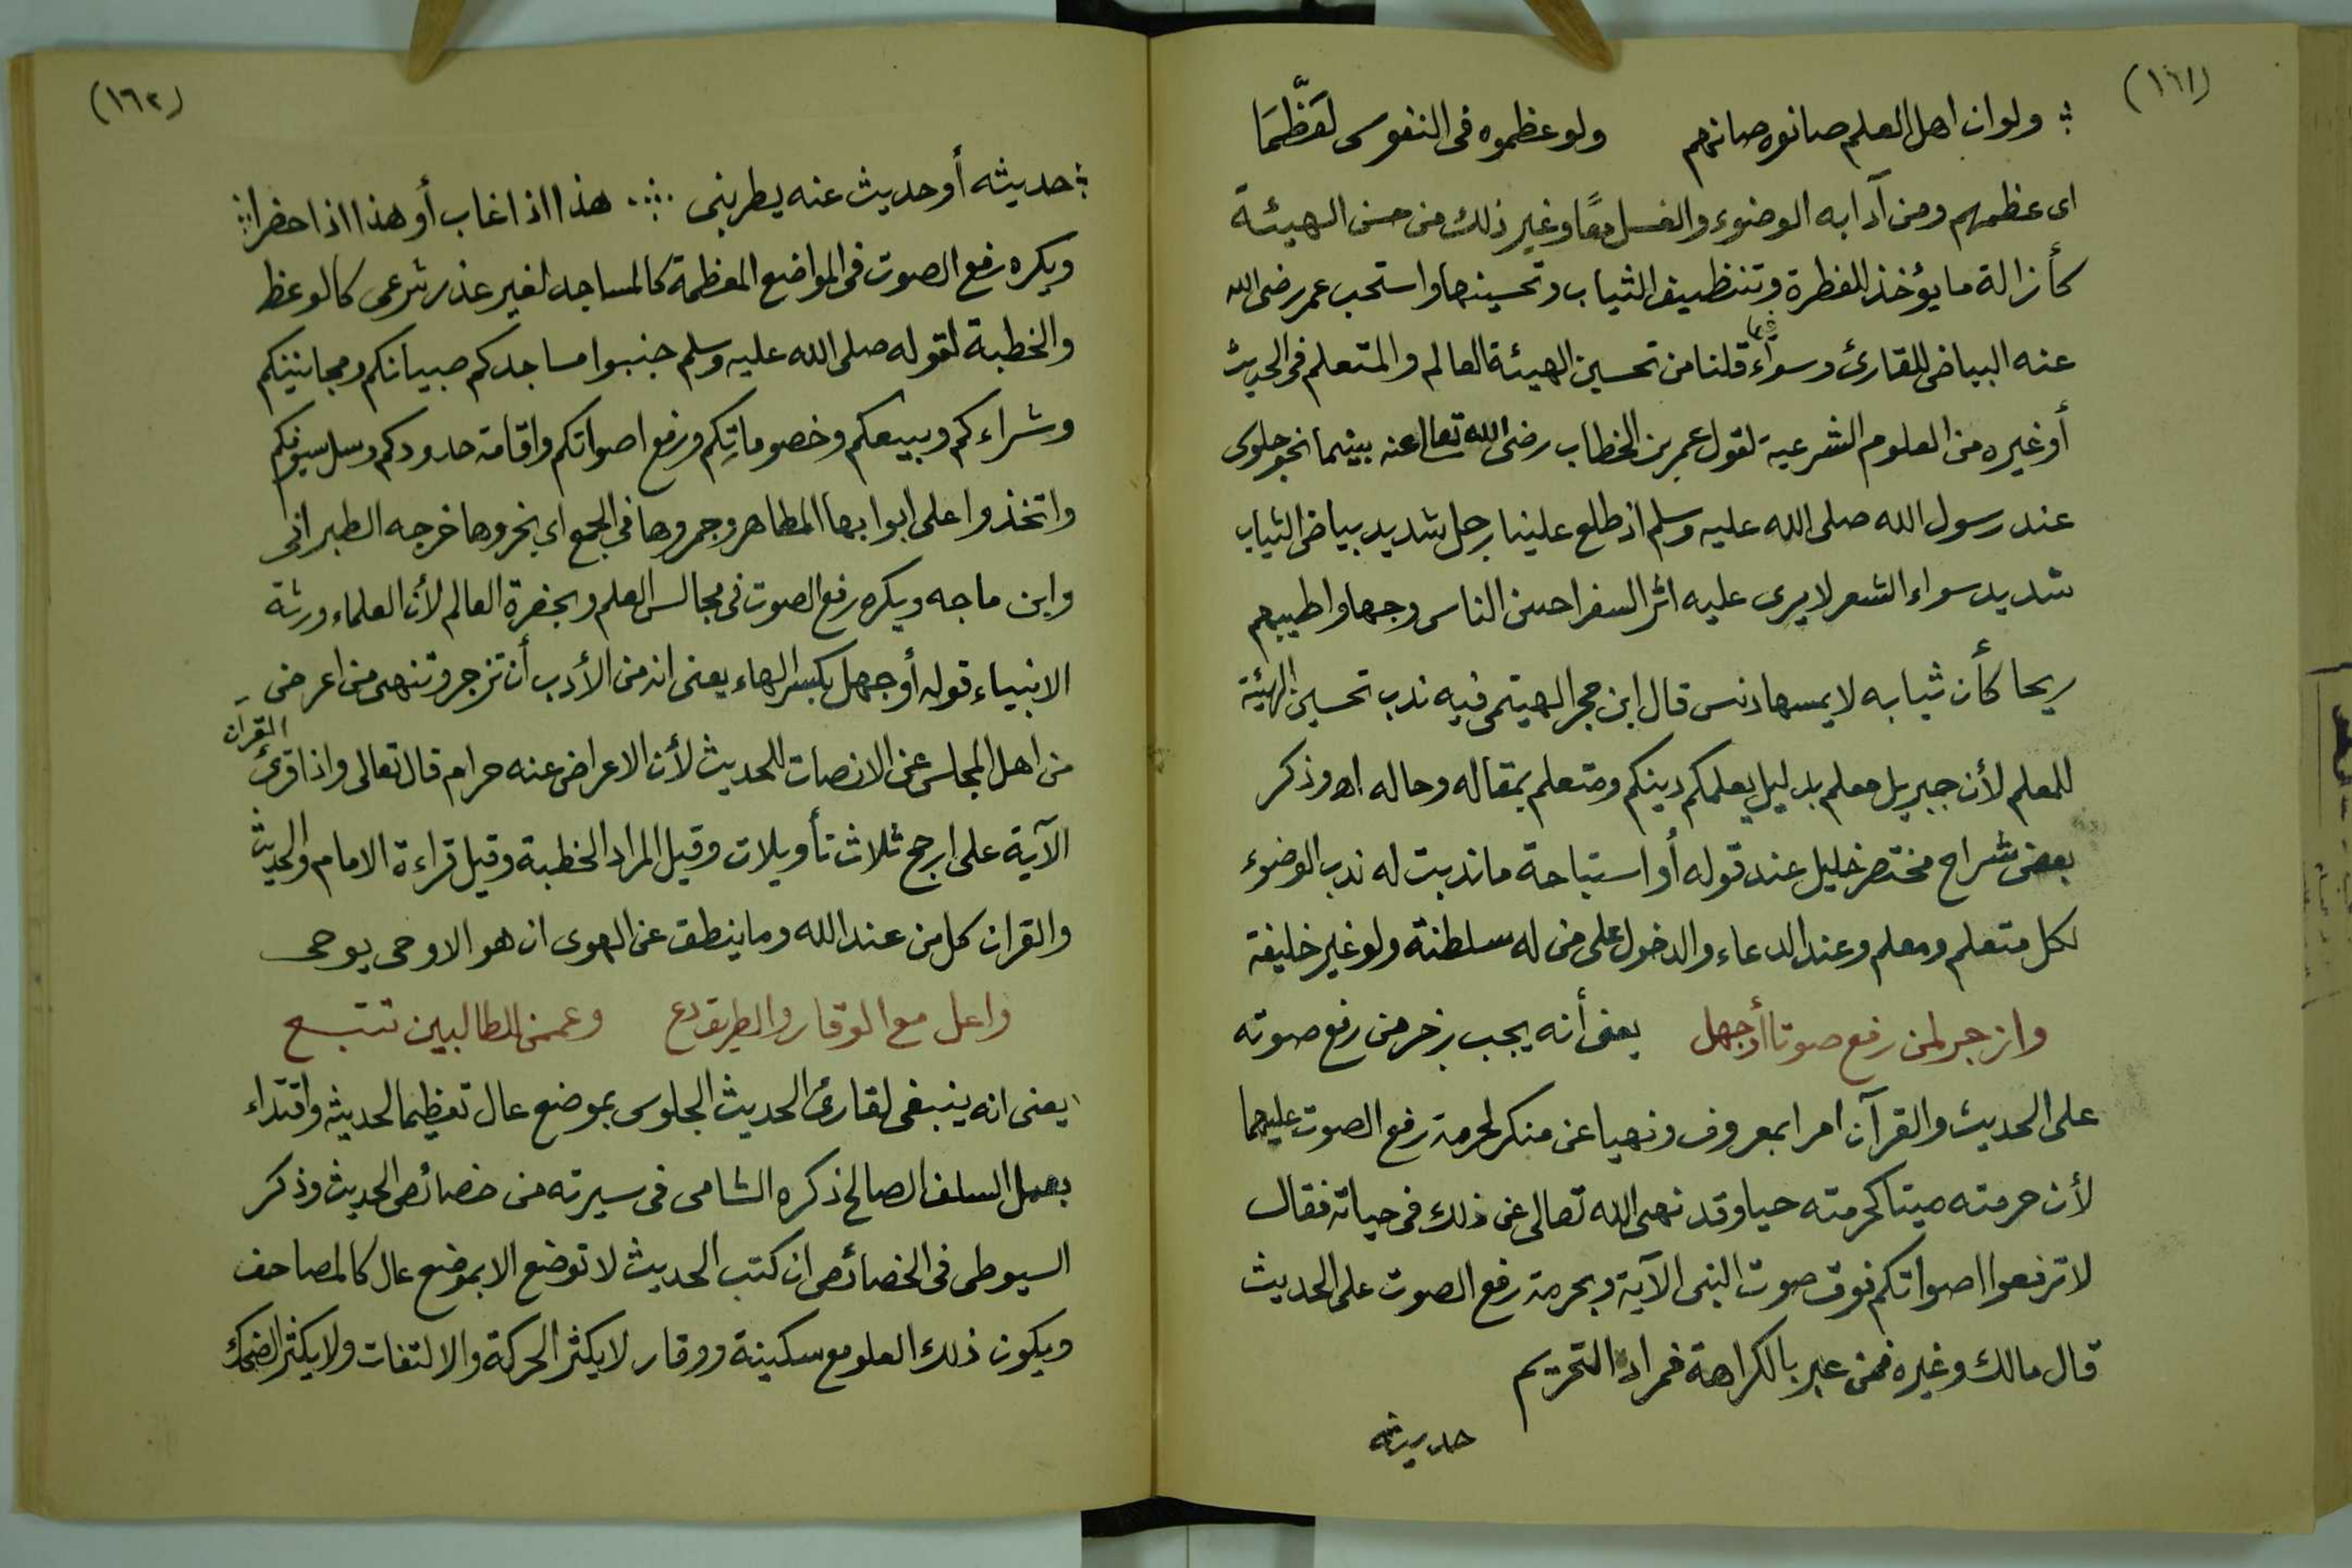 (١٦١)
؛ ولو ان اهل العلم صانوه صانهم ولو عظموه فى النفوس لعَظَّمَا
اى عظمهم ومن آدابه الوضوء والغسل معًا وغير ذلك من حسن الهيئة
كأزالة ما يؤخذ للفطرة وتنظيف الثياب وتحسينها واستحب عمر رضى الله
عنه البياض للقارئ وسواء قلنا من تحسين الهيئة العالم والمتعلم فى الحديث
أو غيره من العلوم الشرعية لقول عمر بن الخطاب رضى الله تعالى عنه بينما نحن جلوس
عند رسول الله صلى الله عليه وسلم اذ طلع علينا رجل شديد بياض الثياب
شديد سواء الشعر لا يرى عليه اثر السفر احسن الناس وجها واطيبهم
ريحا كأن ثيابه لا يمسها دنس قال ابن حجر الهيتمى فيه ندب تحسين الهيئة
للمعلم لأن جبريل معلم بدليل يعلمكم دينكم ومتعلم بمقاله وحاله اه وذكر
بعض شراح مختصر خليل عند قوله أو استباحة ما ندبت له ندب الوضوء
لكل متعلم ومعلم وعند الدعاء والدخول على من له سلطنة ولو غير خليفة
وازجر لمن رفع صوتا أوجهل يعنى أنه يجب زجر من رفع صوته
على الحديث والقرآن امرا بمعروف ونهيا عن منكر لحرمة رفع الصوت عليهما
لأن حرمته ميتا كحرمته حيا وقد نهى الله تعالى عن ذلك فى حياته فقال
لا ترفعوا اصواتكم فوق صوت النبى الآية وبحرمة رفع الصوت على الحديث
قال مالك وغيره فمن عبر بالكراهة فمراد التحريم
حديثه
(١٦٢)
؛ حديثه أو حديث عنه يطربنى ؛ هذا اذا غاب أو هذا اذا حضرا ؛
ويكره رفع الصوت فى المواضع المعظمة كالمساجد لغير عذر شرعى كالوعظ
والخطبة لقوله صلى الله عليه وسلم جنبوا مساجدكم صبيانكم ومجانينكم
وشراءكم وبيعكم وخصوماتِكم ورفع اصواتكم واقامة حدودكم وسل سيوفكم
واتخذوا على ابوابها المطاهر وجمروها فى الجمع اى بخروها خرجه الطبرانى
وابن ماجه ويكره رفع الصوت فى مجالس العلم وبحضرة العالم لأن العلماء ورثة
الانبياء قوله أوجهل بكسر الهاء يعنى انه من الأدب أن تزجر وتنهى من اعرض
من اهل المجلس عن الانصات للحديث لأن الاعراض عنه حرام قال تعالى واذا قرئ القرآن
الآية على ارجح ثلاث تأويلات وقيل المراد الخطبة وقيل قراءة الامام والحديث
والقران كل من عند الله وما ينطق عن الهوى ان هو الا وحى يوحى
واعل مع الوقار والطريق دع وعمن للطالبين تتبع
يعنى انه ينبغى لقارئ الحديث الجلوس بموضع عال تعظيما لحديثه واقتداء
بعمل السلف الصالح ذكره الشامى فى سيرته من خصائص الحديث وذكر
السيوطى فى الخصائص ان كتب الحديث لا توضع الا بموضع عال كالمصاحف
ويكون ذلك العلو مع سكينة ووقار لا يكثر الحركة والالتفات ولا يكثر الضحك